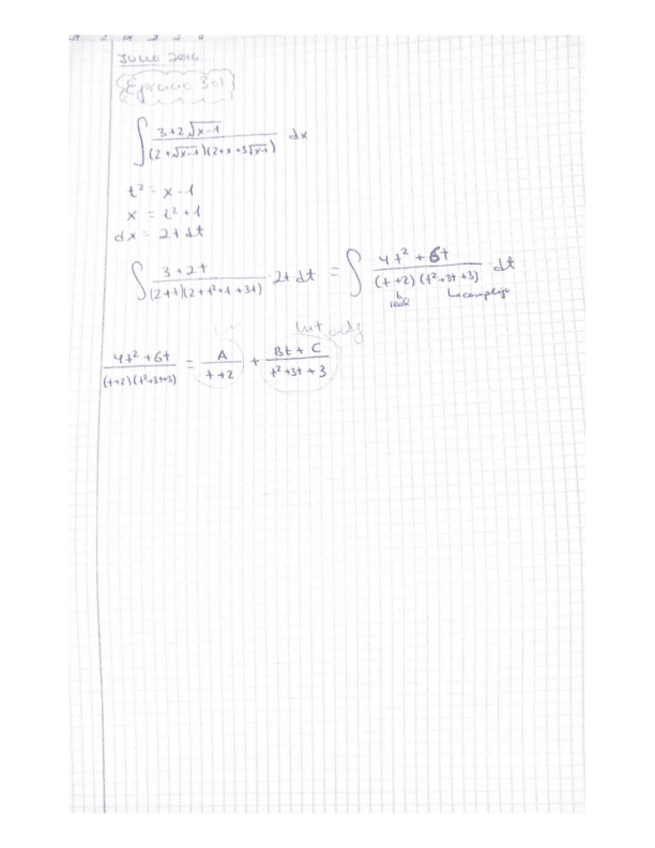 JULIO 2016
Ejercicio 3.1
∫ 3+2√x-1 / (2+√x-1)(2+x+3√x-1) dx
t² = x-1
x = t²+1
dx = 2t dt
∫ 3+2t / (2+t)(2+t²+1+3t) · 2t dt = ∫ 4t²+6t / (t+2)(t²+3t+3) · dt
real complejo
4t²+6t / (t+2)(t²+3t+3) = A / t+2 + Bt+C / t²+3t+3